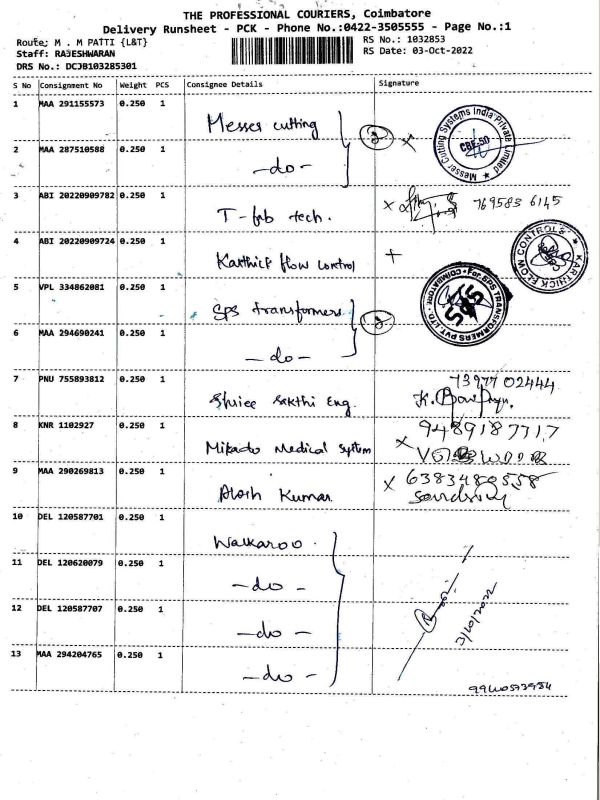 THE PROFESSIONAL COURIERS, Coimbatore
Delivery Runsheet - PCK - Phone No.:0422-3505555 - Page No.:1
Route: M . M PATTI {L&T}
RS No.: 1032853
Staff: RAJESHWARAN
RS Date: 03-Oct-2022
DRS No.: DCJB103285301
S No Consignment No Weight PCS Consignee Details Signature
1 MAA 291155573 0.250 1 Messer cutting 2 x
Messer Cutting Systems India Private Limited CBE-50
2 MAA 287510588 0.250 1 -do-
3 ABI 20220909782 0.250 1 T-fab tech. x 769583 6145
4 ABI 20220909724 0.250 1 Karthick flow control +
KARTHICK FLOW CONTROLS
5 VPL 334862081 0.250 1 SPS transformers 2
For SPS TRANSFORMERS PVT. LTD. COIMBATORE SPS
6 MAA 294690241 0.250 1 -do-
7 PNU 755893812 0.250 1 Shree sakthi Eng. 73977 02444
8 KNR 1102927 0.250 1 Mikado Medical system x 9489187717
9 MAA 290269813 0.250 1 Alosh Kumar x 6383480558
10 DEL 120587701 0.250 1 Walkaroo.
11 DEL 120620079 0.250 1 -do-
12 DEL 120587707 0.250 1 -do-
3/10/2022
13 MAA 294204765 0.250 1 -do-